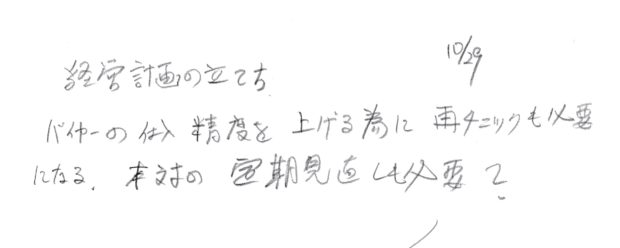 10/29
経営計画の立て方
バイヤーの仕入 精度を 上げる為に 再チェックも必要
になる. 本対の 定期見直しも必要?